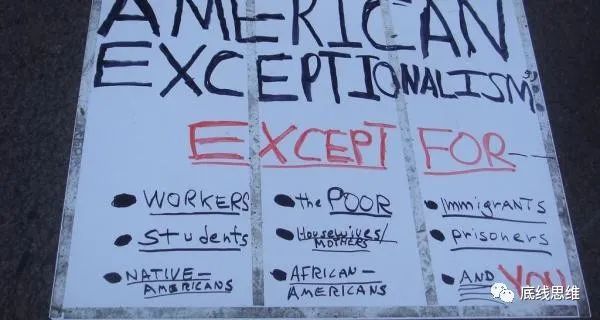 AMERICAN
EXCEPTIONALISM"
EXCEPT FOR--
• WORKERS
• Students
• NATIVE-
AMERICANS
• the POOR
• HOUSEWIVES/
MOTHERS
• AFRICAN-
AMERICANS
• Immigrants
• prisoners
• AND YOU
底线思维